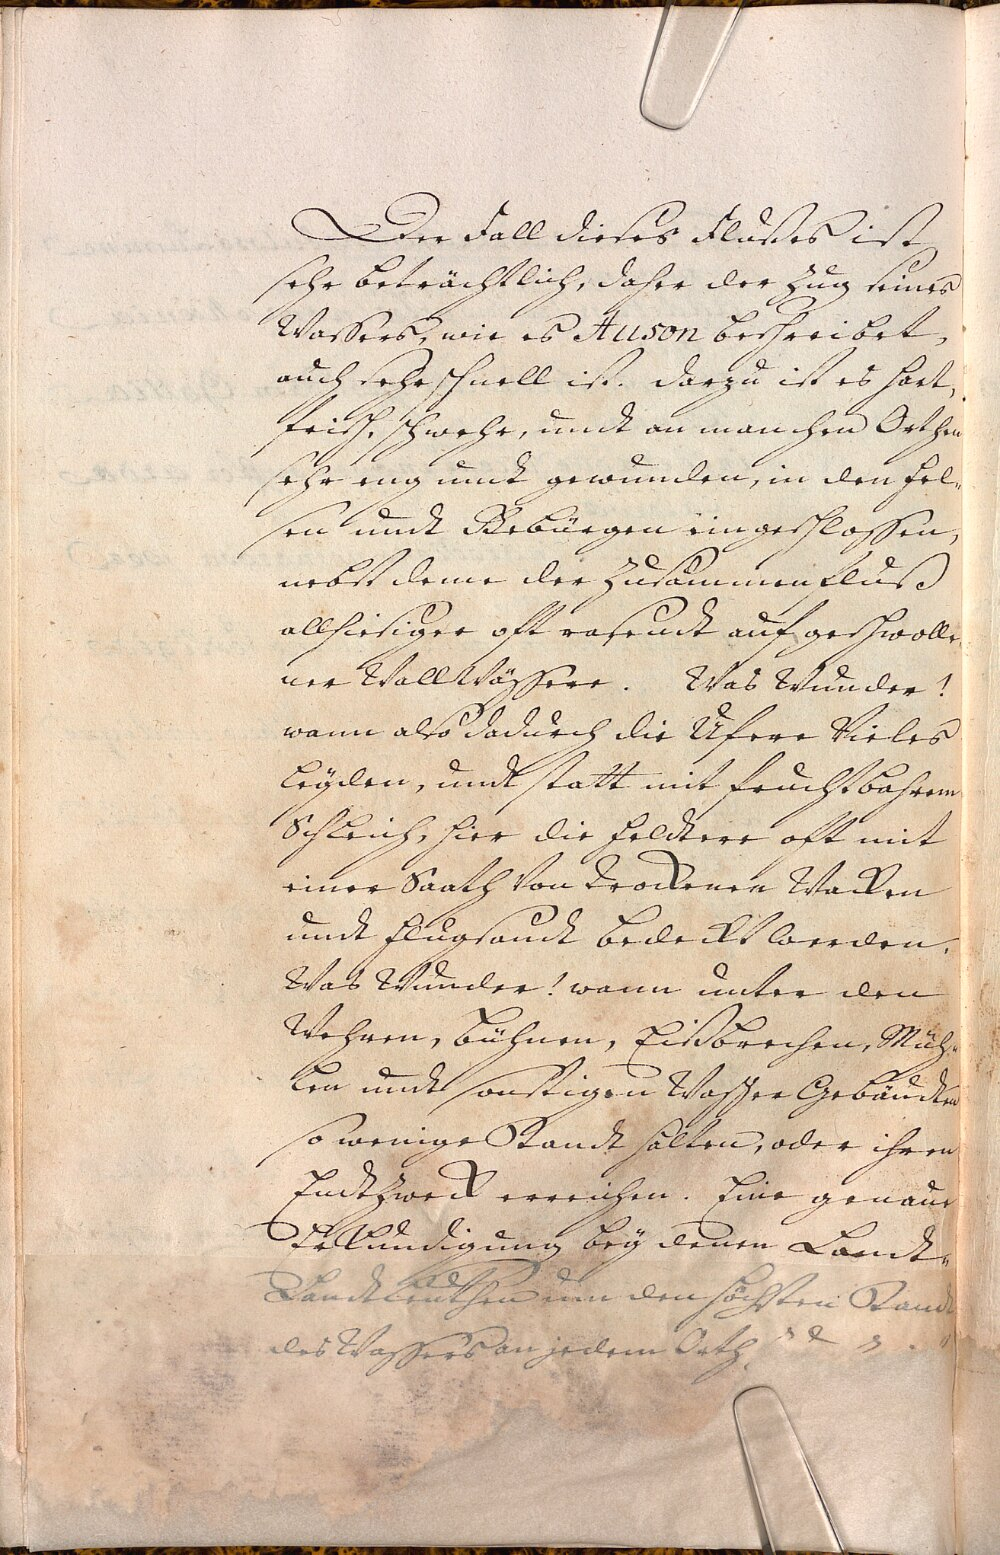 Der Fall dieses Flußes ist
sehr beträchtlich, daher der Zug seines
Wassers, wie es Auson beschreibet,
auch sehr schnell ist. darzu ist es hart,
frisch, schwehr, undt an manchen Orthen
sehr eng undt gewunden, in den Fel-
sen undt Gebürgen eingeschlossen,
nebst deme der Zusammenfluß
allhiesiger oft rasendt aufgeschwolle-
ner WallWässere. Was Wunder!
wann also dadurch die Ufere Vieles
leyden, undt statt mit fruchtbahrem
Schleich, hier die Feldere oft mit
einer Saath von trockenen Wacken
undt Flugsandt bedeckt werden.
Was Wunder! wann unter den
Wehren, Bühnen, Eißbrechen, Müh-
len undt sonstigen Wasser Gebäudten
so wenige Standt halten, oder ihren
Endtzweck erreichen. Eine genaue
Erkundigung bey denen Landt-
Landtleuthen um den höchsten Standt
des Wassers an jedem Orth